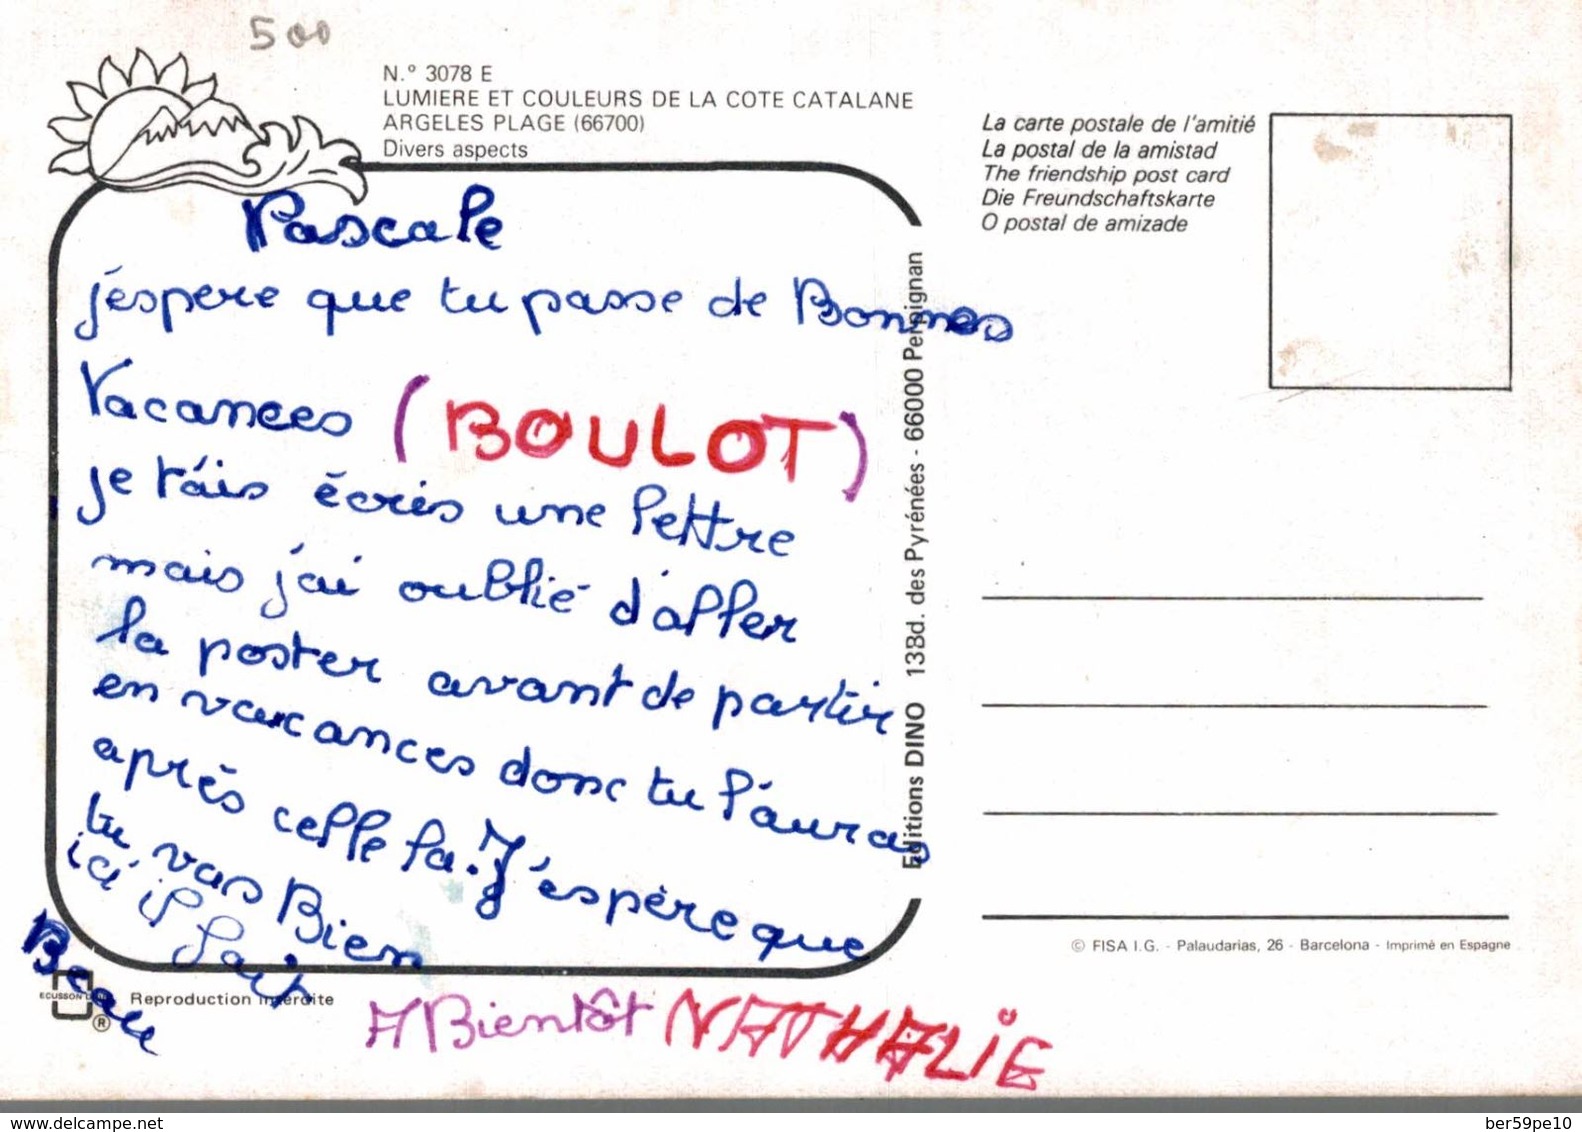 500
N.° 3078 E
LUMIERE ET COULEURS DE LA COTE CATALANE
ARGELES PLAGE (66700)
Divers aspects
Pascale
j'éspere que tu passe de Bonnes
Vacances (BOULOT)
je t'áis écris une lettre
mais j'ai oublié d'aller
la poster avant de partir
en vacances donc tu l'auras
après celle la. J'espère que
tu vas Bien
ici il fait
Beau
A Bientôt NATHALIE
ECUSSON D'OR
®
Reproduction Interdite
Editions DINO 13Bd. des Pyrénées - 66000 Perpignan
La carte postale de l'amitié
La postal de la amistad
The friendship post card
Die Freundschaftskarte
O postal de amizade
© FISA I.G. - Palaudarias, 26 - Barcelona - Imprimé en Espagne
delcampe.net
ber59pe10